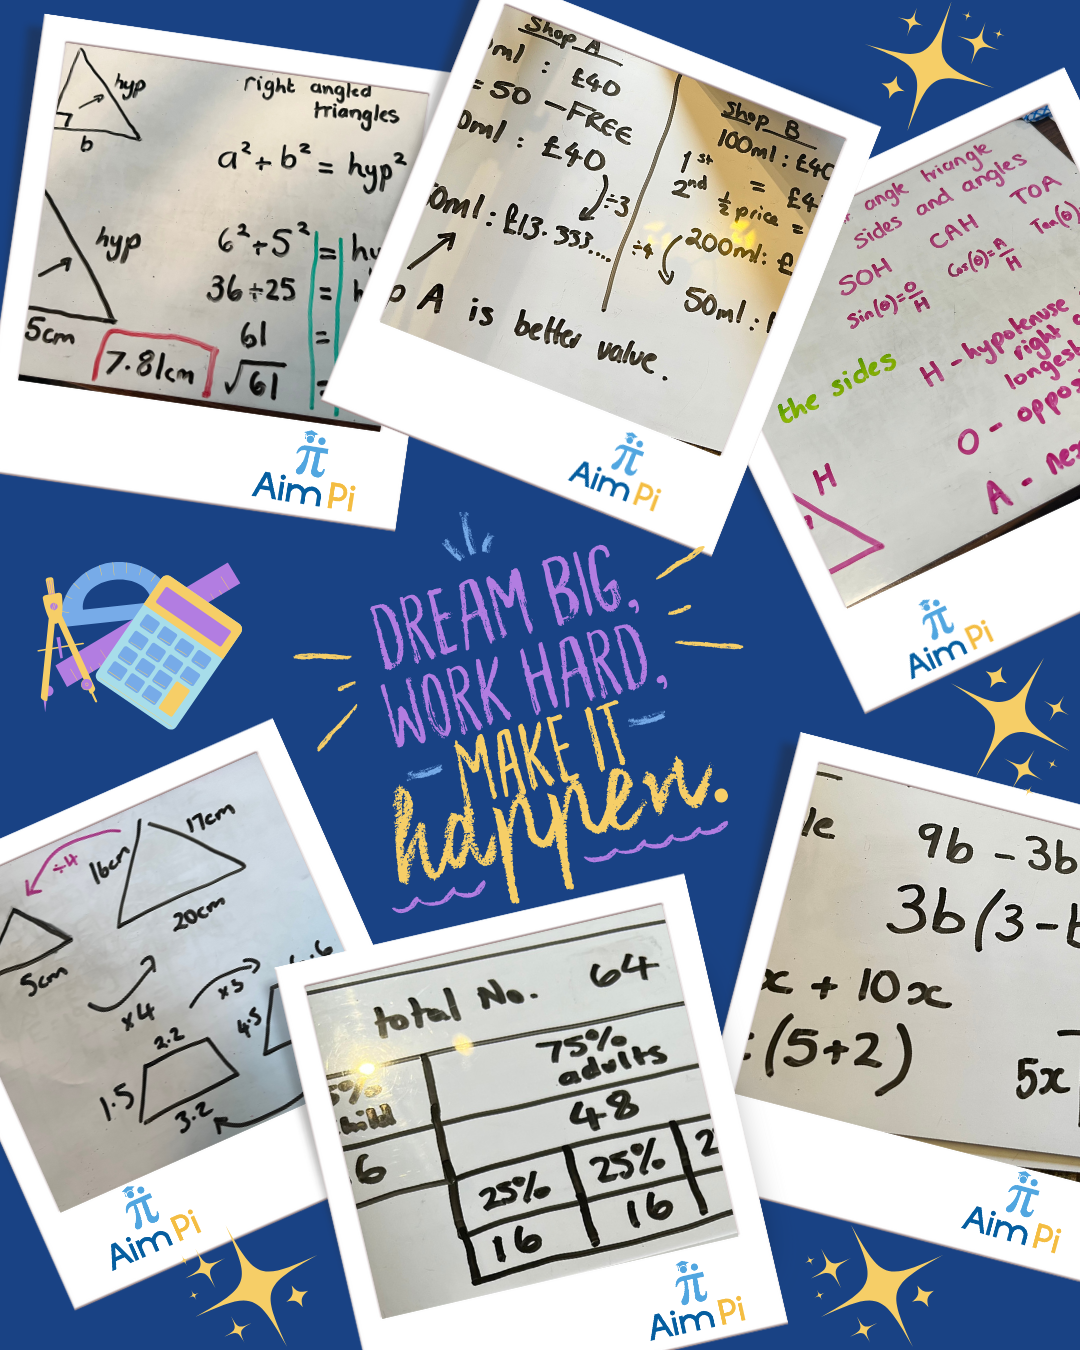 hyp
b
right angled
triangles
a² + b² = hyp²
hyp
6² + 5² =
36 ÷ 25 =
61 =
√61
5cm
7.81cm
Aim Pi
Shop A
ml : £40
= 50 - FREE
0ml : £40
÷3
0ml : £13.333....
A is better value.
Shop B
100ml : £40
1st
2nd = £4
½ price =
200ml : £
÷4
50ml :
Aim Pi
angle triangle
sides and angles
SOH CAH TOA
Sin(θ)=O/H Cos(θ)=A/H Tan(θ)
the sides
H - hypotenuse
right
longest
O -
A -
H
Aim Pi
DREAM BIG,
WORK HARD,
MAKE IT
happen.
÷4
16cm
17cm
20cm
5cm
x4
x3
2.2
1.5
3.2
4.5
Aim Pi
total No. 64
75%
adults
48
6
25% 25% 2
16 16
Aim Pi
le
9b - 3b
3b(3 -
x + 10x
(5+2)
5x
Aim Pi